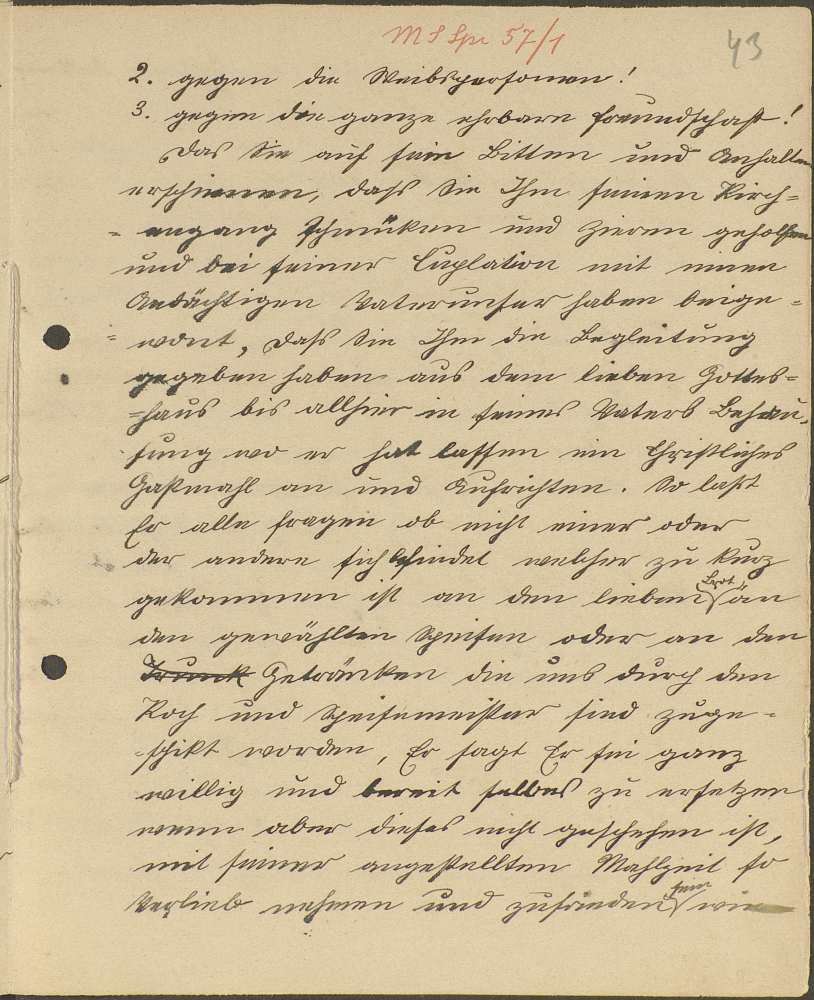 MS Spr 57/1
43
2. gegen die Weibspersonen!
3. gegen die ganze ehrbare Freundschaft!
Das Sie auf sein Bitten und Anhalten
erschienen, dass Sie Ihm seinen Kirch=
=engang schmüken und zieren geholfen
und bei seiner Cuplation mit einen
Andächtigen Vaterunser haben beige=
=wont, Dass Sie Ihm die Begleitung
gegeben haben aus dem lieben Gottes=
=haus bis allhier in seines Vaters Behau,
sung wo er hat lassen ein Christliches
Gastmahl an und Aufrichten. So lasst
Er alle fragen ob nicht einer oder
der andere sich befindet welcher zu kurz
gekommen ist an den lieben Brot, an
den gewählten Speisen oder an den
Trunk Getränken die uns durch den
Koch und Speisemeister sind zuge=
schikt worden, Er sagt Er sei ganz
willig und bereit selbes zu ersetzen
wenn aber dieses nicht geschehen ist,
mit seiner angestellten Mahlzeit so
Verlieb nehmen und zufrieden sein wie